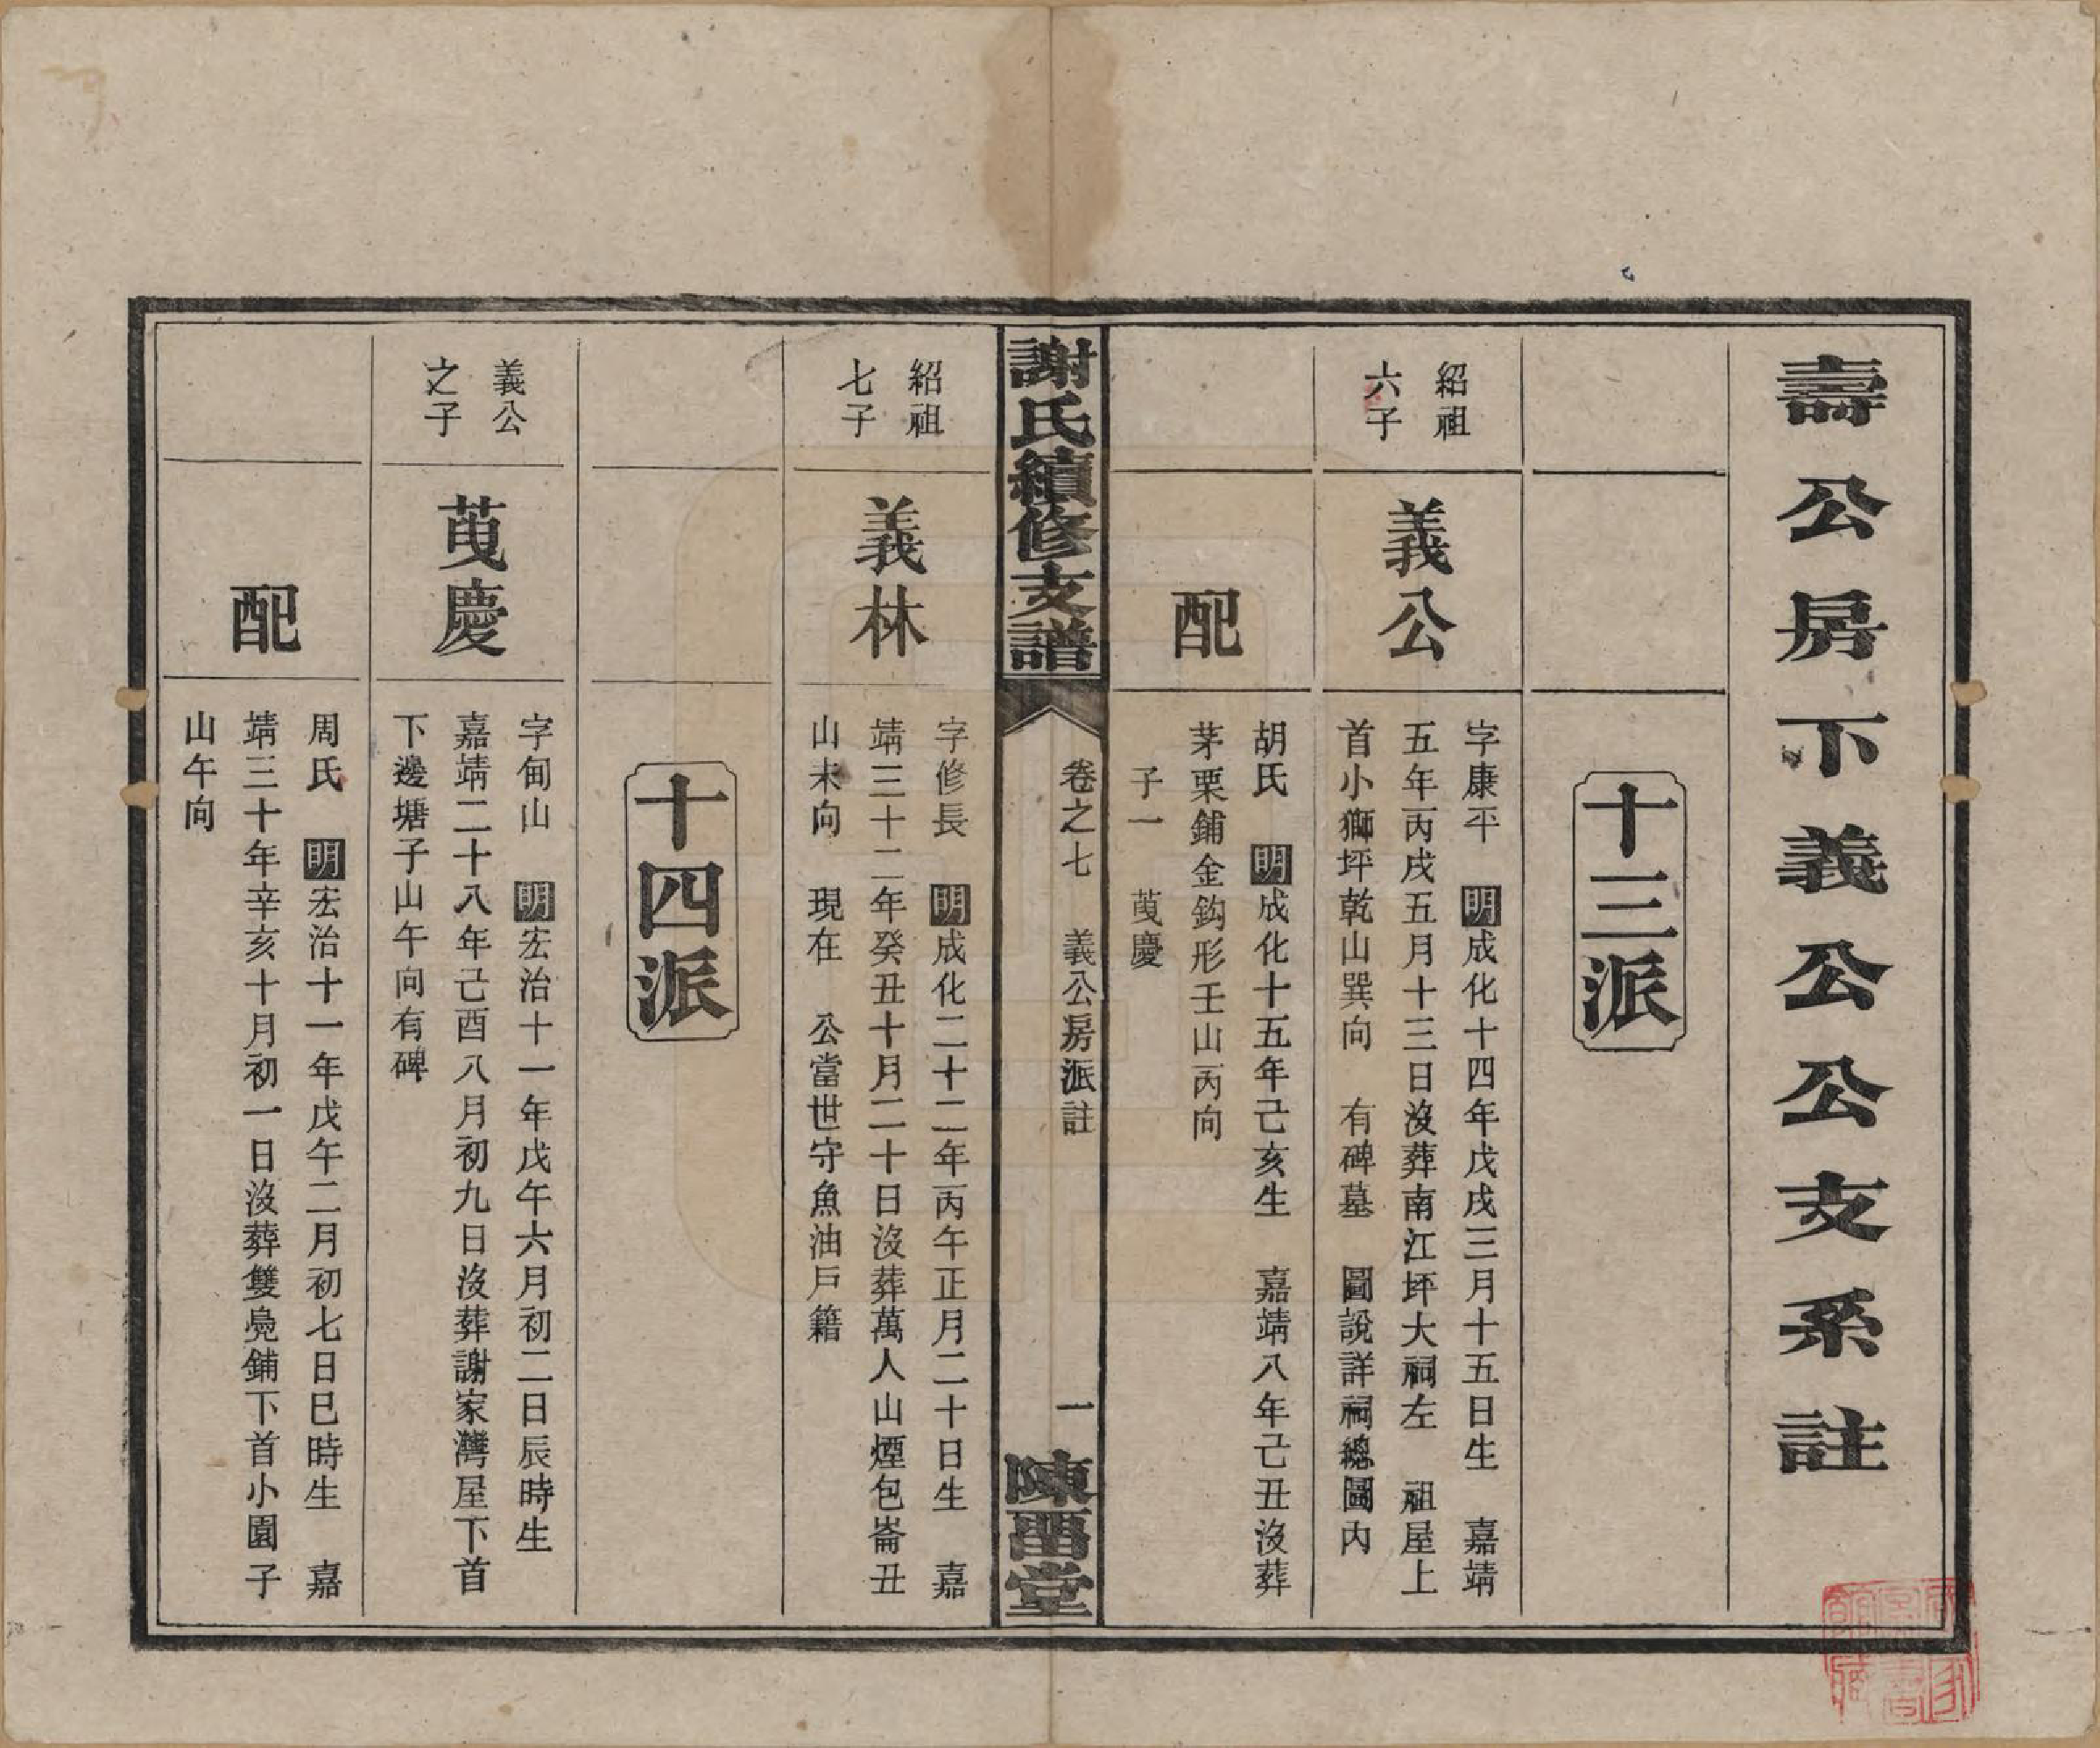 壽公房下義公公支系註
十三派
紹祖
六子
義公
字康平 明成化十四年戊戌三月十五日生 嘉靖
五年丙戌五月十三日沒葬南江坪大祠左 祖屋上
首小獅坪乾山巽向 有碑墓 圖說詳祠總圖內
配
胡氏 明成化十五年己亥生 嘉靖八年己丑沒葬
茅栗鋪金鈎形壬山丙向
子一 萸慶
謝氏續修支譜
卷之七 義公房派註
一
陳畱堂
紹祖
七子
義林
字修長 明成化二十二年丙午正月二十日生 嘉
靖三十二年癸丑十月二十日沒葬萬人山煙包崙丑
山未向 現在 公當世守魚油戶籍
十四派
義公
之子
萸慶
字甸山 明宏治十一年戊午六月初二日辰時生
嘉靖二十八年己酉八月初九日沒葬謝家灣屋下首
下邊塘子山午向有碑
配
周氏 明宏治十一年戊午二月初七日巳時生 嘉
靖三十年辛亥十月初一日沒葬雙凫鋪下首小園子
山午向